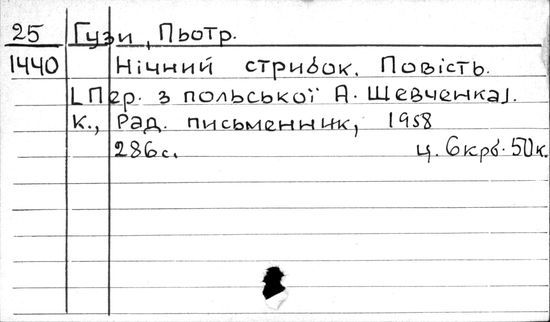 25 Гузи, Пьотр.
1440 Нічний стрибок. Повість.
[Пер. з польської А. Шевченка].
К., Рад. письменник, 1958
286 с. ц. 6 крб. 50 к.